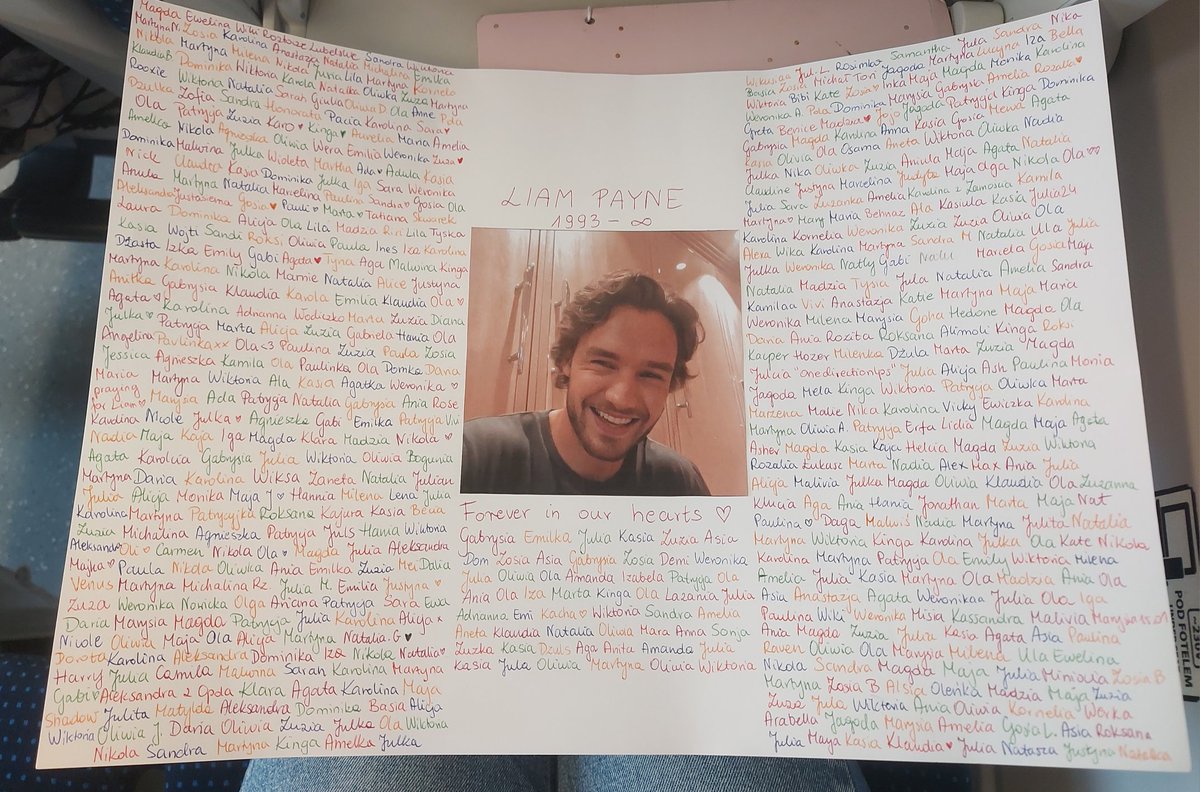 Magda Ewelina Wiki Roztocze Lubelskie Sandra Wiktoria
Martyna N. Zosia Karolina Anastazja Natalia Michalina Emilka
Nikola Martyna Milena Nikola Julia Lila Martyna Kornela
Klaudia B Dominika Wiktoria Karola Natalka Oliwka Zuza Martyna
Roxie Wiktoria Natalia Sarah Giulia Oliwia D. Ola Anne Pola
Dżulka Zofia Sandra Honorata Pacia Karolina Sara ♥
Ola Patrycja Zuzia Karo ♥ Kinga ♥ Aurelia Maria Amelia
Amelka Nikola Agnieszka Oliwia Wera Emilia Weronika Zuza ♥
Dominika Malwina Julka Wioleta Martha Ada ♥ Adula Kasia
Nick Claudia Kasia Dominika Julka Iga Sara Weronika
Anula Martyna Natalia Marcelina Paulina Sandra ♥ Gosia Ola
Aleksandra Justa Gosia ♥ Pauli ♥ Marta ♥ Tatiana Skwarek
Laura Dominika Alicja Ola Lila Madzia Riri Lila Tyska
Kasia Wojti Sandi Roksi Oliwia Paula Ines Iza Karolina
Dżasta Izka Emily Gabi Agata ♥ Tyna Aga Malwina Kinga
Martyna Karolina Nikola Marnie Natalia Alice Justyna
Anitka Gabrysia Klaudia Karola Emilia Klaudia Ola ♡
Agata <3 Karolina Adrianna Wodiczko Marta Zuzia Diana
Julka ♥ Patrycja Marta Alicja Zuzia Gabriela Hania Ola
Angelina Pavlinkaxx Ola <3 Paulina Zuzia Paula Zosia
Jessica Agnieszka Kamila Ola Paulinka Ola Domka Daria
Maria Martyna Wiktoria Ala Kasia Agatka Weronika ♡
praying for Liam ♥ Marysia Ada Patrycja Natalia Gabrysia Ania Rose
Karolina Nicole Julka ♥ Agnieszka Gabi Emilka Patrycja Vivi
Nadia Maja Kaja Iga Magda Klara Madzia Nikola ♡
Agata Karolcia Gabrysia Julia Wiktoria Oliwia Bogunia
Martyna Daria Karolina Wiksa Żaneta Natalia Julian
Julia Alicja Monika Maja J ♥ Hannia Milena Lena Julia
Karolina Martyna Patrycyjka Roksana Kajura Kasia Bewa
Zuzia Michalina Agnieszka Patrycja Juls Hania Wiktoria
Aleksandra Oli ♡ Carmen Nikola Ola ♥ Magda Julia Aleksandra
Majka ♥ Paula Nikola Oliwka Ania Emilka Zuzia Mei Dalia
Venus Martyna Michalina Rz Julia M. Emilia Justyna ♡
Zuza Weronika Nowicka Olga Ariana Patrycja Sara Ewa
Daria Marysia Magda Patrycja Julia Karolina Alicja x
Nicole Oliwia Maja Ola Alicja Martyna Natalia.G ♥
Dorota Karolina Aleksandra Dominika Iza Nikola Natalia ♡
Harry Julia Camila Malwina Sarah Karolina Martyna
Gabi ♡ Aleksandra z Opola Klara Agata Karolina Maja
Shadow Julita Matylda Aleksandra Dominika Basia Alicja
Wiktoria Oliwia J. Daria Oliwia Zuzia Julka Ola Wiktoria
Nikola Sandra Martyna Kinga Amelka Julka
LIAM PAYNE
1993 - ∞
Forever in our hearts ♡
Gabrysia Emilka Julia Kasia Zuzia Asia
Dom Zosia Asia Gabrysia Zosia Demi Weronika
Julia Oliwia Ola Amanda Izabela Patrycja Ola
Ania Ola Iza Marta Kinga Ola Lazania Julia
Adrianna Emi Kacha ♥ Wiktoria Sandra Amelia
Aneta Klaudia Natalia Oliwia Mara Anna Sonja
Zuzka Kasia Dżuls Aga Anita Amanda Julia
Kasia Jula Oliwia Martyna Oliwia Wiktoria
Wikusiga Jul. L. Rosimkw Samantha Jula Sandra Nika
Basica Zosia Michał Tori Jagoda Martyna Lucyna Iza Bella
Wiktoria Bibi Kate Zosia ♡ Inka Maja Magda Monika Karolina
Weronika A. Pola Dominika Marysia Gabrysia Amelia Rozalia ♥
Greta Bernice Madzia ♥ Jojo Jagoda Patrycja Kinga Dominika
Gabrysia Magda Karolina Anna Kasia Gosia Hewa Agata
Kasia Olivia Ola Osama Aneta Wiktoria Oliwka Nadia
Julka Nika Oliwka Zuzia Aniula Maja Agata Natalia
Claudine Justyna Marcelina Judyta Maja Olga Nikola Ola ♡♡
Julia Sara Zuzanka Amelia Karolina z Zamościa Kamila
Martyna ♡ Mary Maria Behnaz Ala Kasiula Kasia Julia24
Karolina Kornelia Weronika Zuzia Zuzia Oliwia Ola
Alexa Wika Karolina Martyna Sandra M Natalia Ula Julia
Julka Weronika Natly Gabi Marcela Gosia Maja
Natalia Madzia Tysia Jula Natalia Amelia Sandra
Kamilaa Vivi Anastazja Katie Martyna Maja Maria
Weronika Milena Marysia Gocha Hedone Magda Ola
Daria Ania Rozita Roksana Alimoli Kinga Roksi
Kacper Hozer Milenka Dżula Marta Zuzia Magda
Julcia "onedirectionlps" Julia Alicja Ash Paulina Monia
Jagoda Mela Kinga Wiktoria Patrycja Oliwka Marta
Marzena Malie Nika Karolina Vicky Ewiczka Karolina
Martyna Oliwia A. Patrycja Erfa Lidia Magda Maja Agata
Asher Magda Kasia Kaja Helcia Magda Zuzia Wiktoria
Rozalia Łukasz Marta Nadia Alex Max Ania Julia
Alicja Malivia Julka Magda Oliwia Klaudia Ola Zuzanna
Klucia Aga Ania Hania Jonathan Marta Maja Nat
Paulina ♡ Daga Nadia Martyna Julita Natalia
Martyna Wiktoria Kinga Karolina Julka Ola Kate Nikola
Karolina Martyna Patrycja Ola Emily Wiktoria Milena
Amelia Julia Kasia Martyna Ola Madzia Ania Ola
Asia Anastazja Agata Weronikaa Julia Ola Iga
Paulina Wiki Weronika Misia Kassandra Malivia
Ania Magda Zuzia Julia Kasia Agata Asia Paulina
Raven Oliwia Ola Marysia Milena Ula Ewelina
Nikola Sandra Magda Maja Julia Miniowa Zosia B
Martyna Zosia B Alsia Oleńka Madzia Maja Zuzia
Zuza Julia Wiktoria Ania Oliwia Kornelia Werka
Arabella Jagoda Marysia Amelia Gosia L. Asia Roksana
Julia Maya Kasia Klaudia ♥ Julia Natasza Justyna Natalia
POD FOTELEM